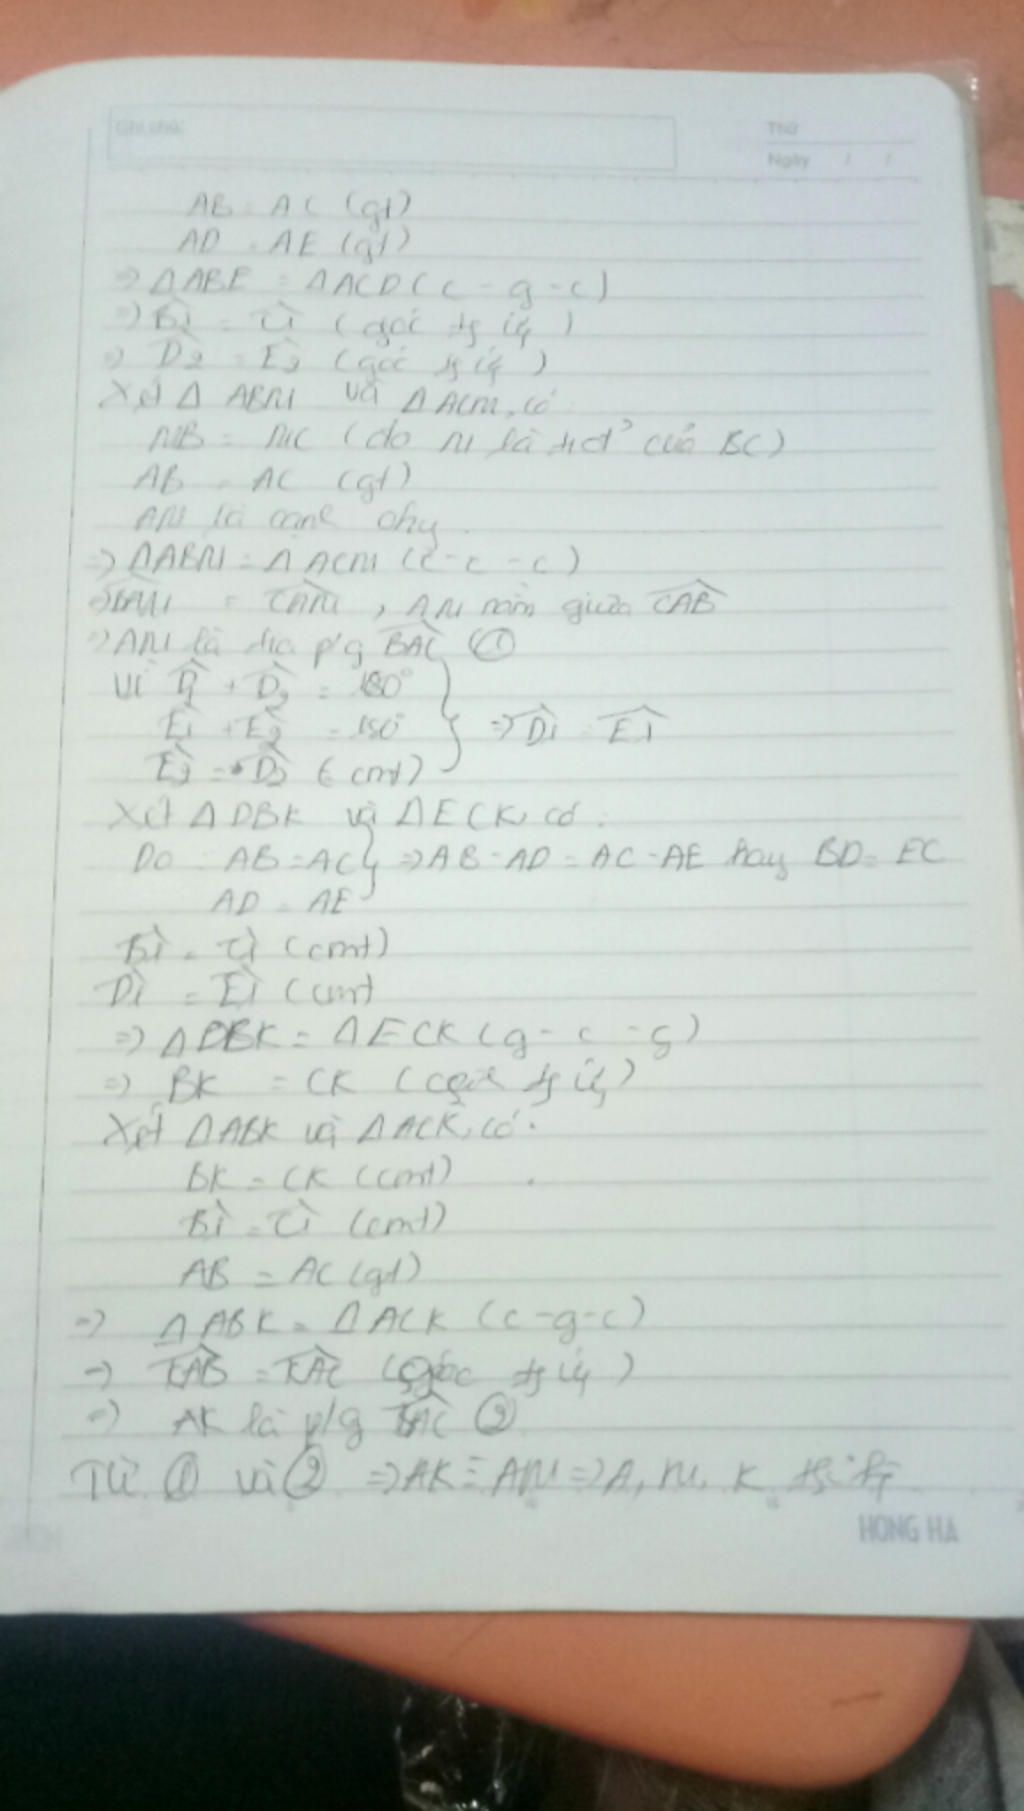 Ghi chú:
Thứ
Ngày / /
AB = AC (gt)
AD = AE (gt)
=> ΔABE = ΔACD (c - g - c)
=> B̂1 = Ĉ1 (góc tg ứg)
=> D̂2 = Ê2 (góc tg ứg)
Xét Δ ABM và ΔACM, có:
MB = MC (do M là tđ² của BC)
AB = AC (gt)
AM là cạnh chg
=> ΔABM = ΔACM (c - c - c)
=> BAM = CAM, AM nằm giữa CAB
=> AM là tia p/g BAC ①
Vì D̂1 + D̂2 = 180°
Ê1 + Ê2 = 180° => D̂1 = Ê1
Ê2 = D̂2 (cmt)
Xét ΔDBK và ΔECK, có:
Do AB = AC => AB - AD = AC - AE hay BD = EC
AD = AE
B̂1 = Ĉ1 (cmt)
D̂1 = Ê1 (cmt)
=> ΔDBK = ΔECK (g - c - g)
=> BK = CK (cạnh tg ứg)
Xét ΔABK và ΔACK, có:
BK = CK (cmt)
B̂1 = Ĉ1 (cmt)
AB = AC (gt)
=> ΔABK = ΔACK (c - g - c)
=> KAB = KAC (góc tg ứg)
=> AK là p/g BAC ②
Từ ① và ② => AK ≡ AM => A, M, K
HONG HA